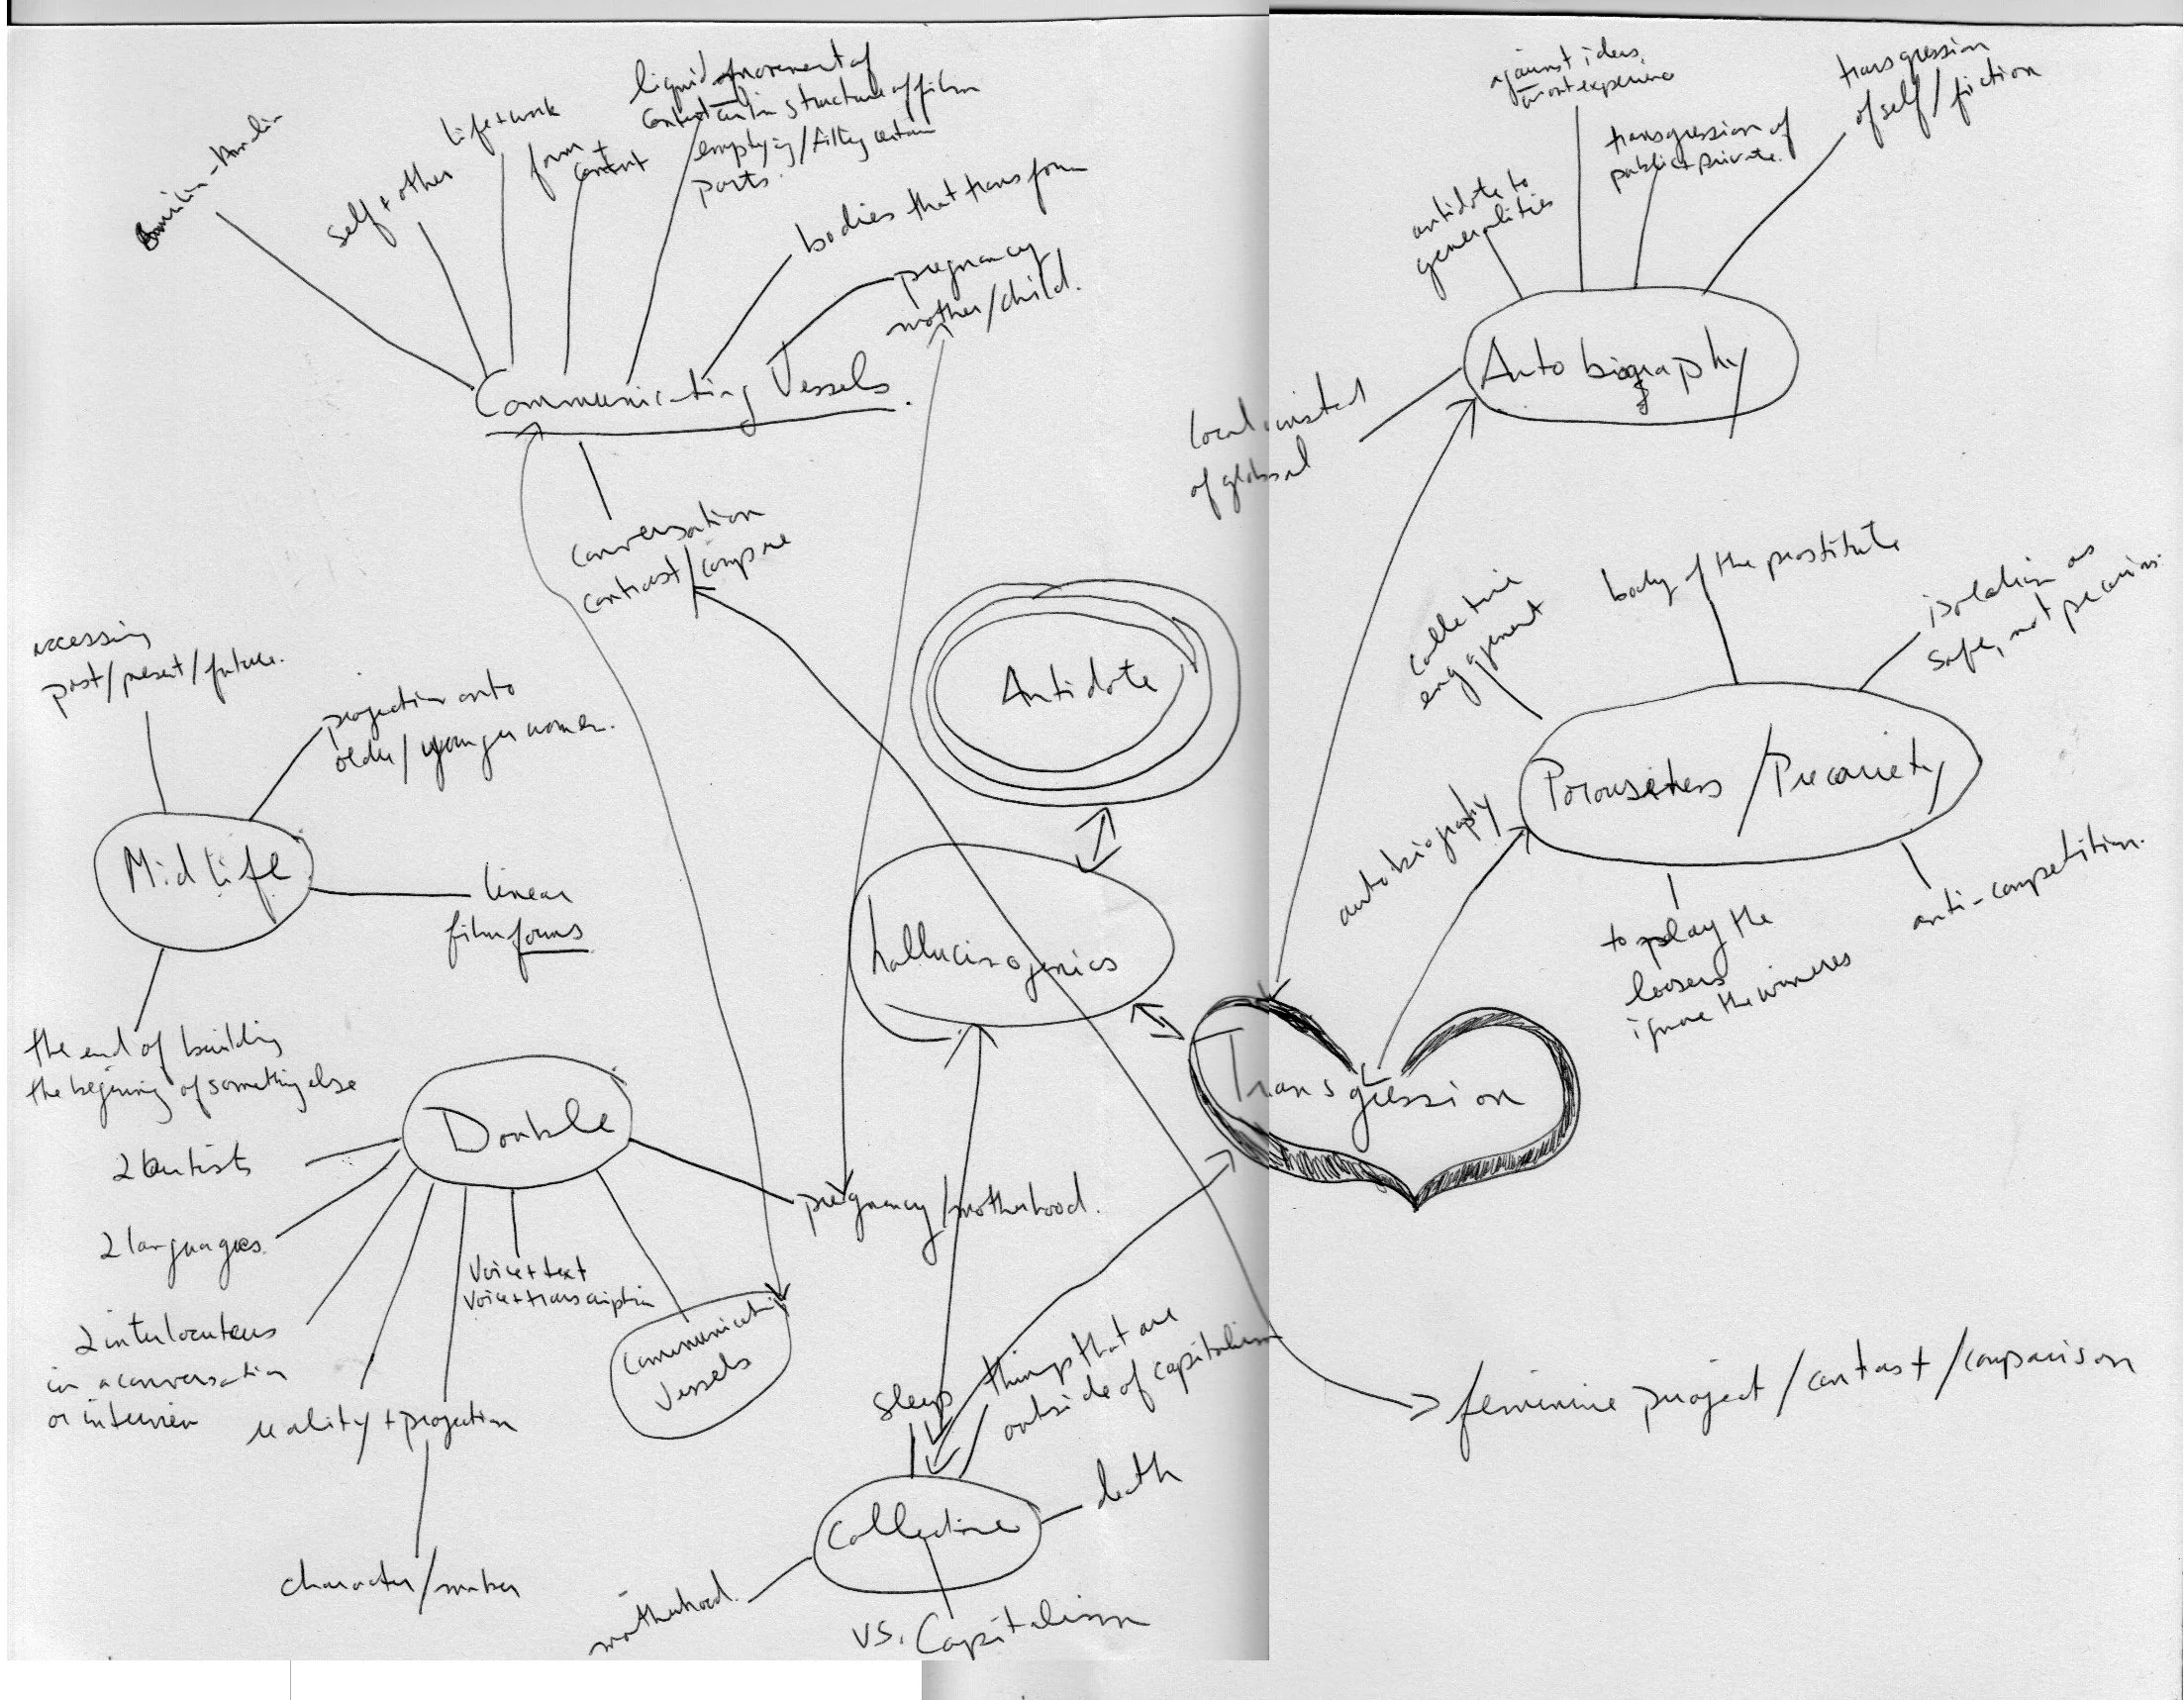 self + other
Life + work
form +
content
liquid movement of
content in structure of film
emptying/filling certain
parts.
bodies that transform
pregnancy
mother/child.
Communicating Vessels.
conversation
contrast/compare
against ideas
antidote to
generalities
transgression of
public + private.
transgression
of self/fiction
Autobiography
local
of global
accessing
past/present/future.
projection onto
older/younger women.
Midlife
linear
film forms
the end of building
the begining of something else
Antidote
hallucinogenics
Transgression
collective
engagement
body of the prostitute
isolation as
safe, not precarious.
Porouseness/Precariety
autobiography
to play the
loosers
ignore the winners
anti-competition.
Double
2 languages
2 interlocuteurs
in a conversation
or interview
reality + projection
character/maker
Voice + text
Voice + transcription
Communicating
Vessels
pregnancy/motherhood.
sleep
things that are
outside of capitalism
Collective
death
motherhood.
vs. Capitalism
feminine project/contrast/comparison